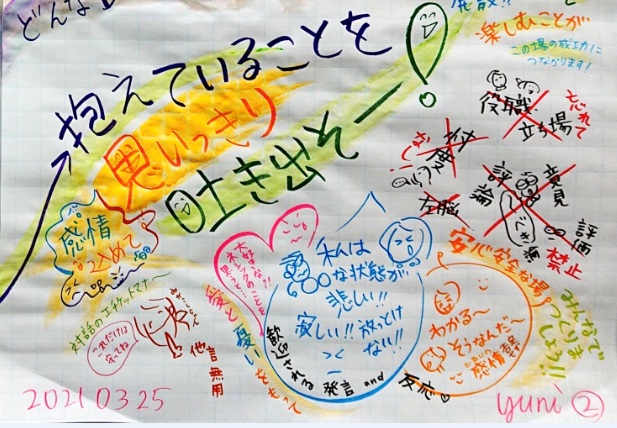 どんな
発散!!
楽しむことが
この場の成功に
つながります!
抱えていることを
思いっきり
吐き出そー!
感情
こめて
役職
立ち場
忘れて
忖度
左脳
評論
意見
べき
評価
禁止
私は
〇〇な状態が
悲しい!!
寂しい!!放っとけ
ない!!
歓迎される発言 and 反応
愛と憂いをもって
安心安全な場
わかる〜
そうなんだ〜
感情
みんなで
つくりま
しょう!!
対話のエチケットマナー
これだけは
守ってね
他言無用
20210325
yuni ②